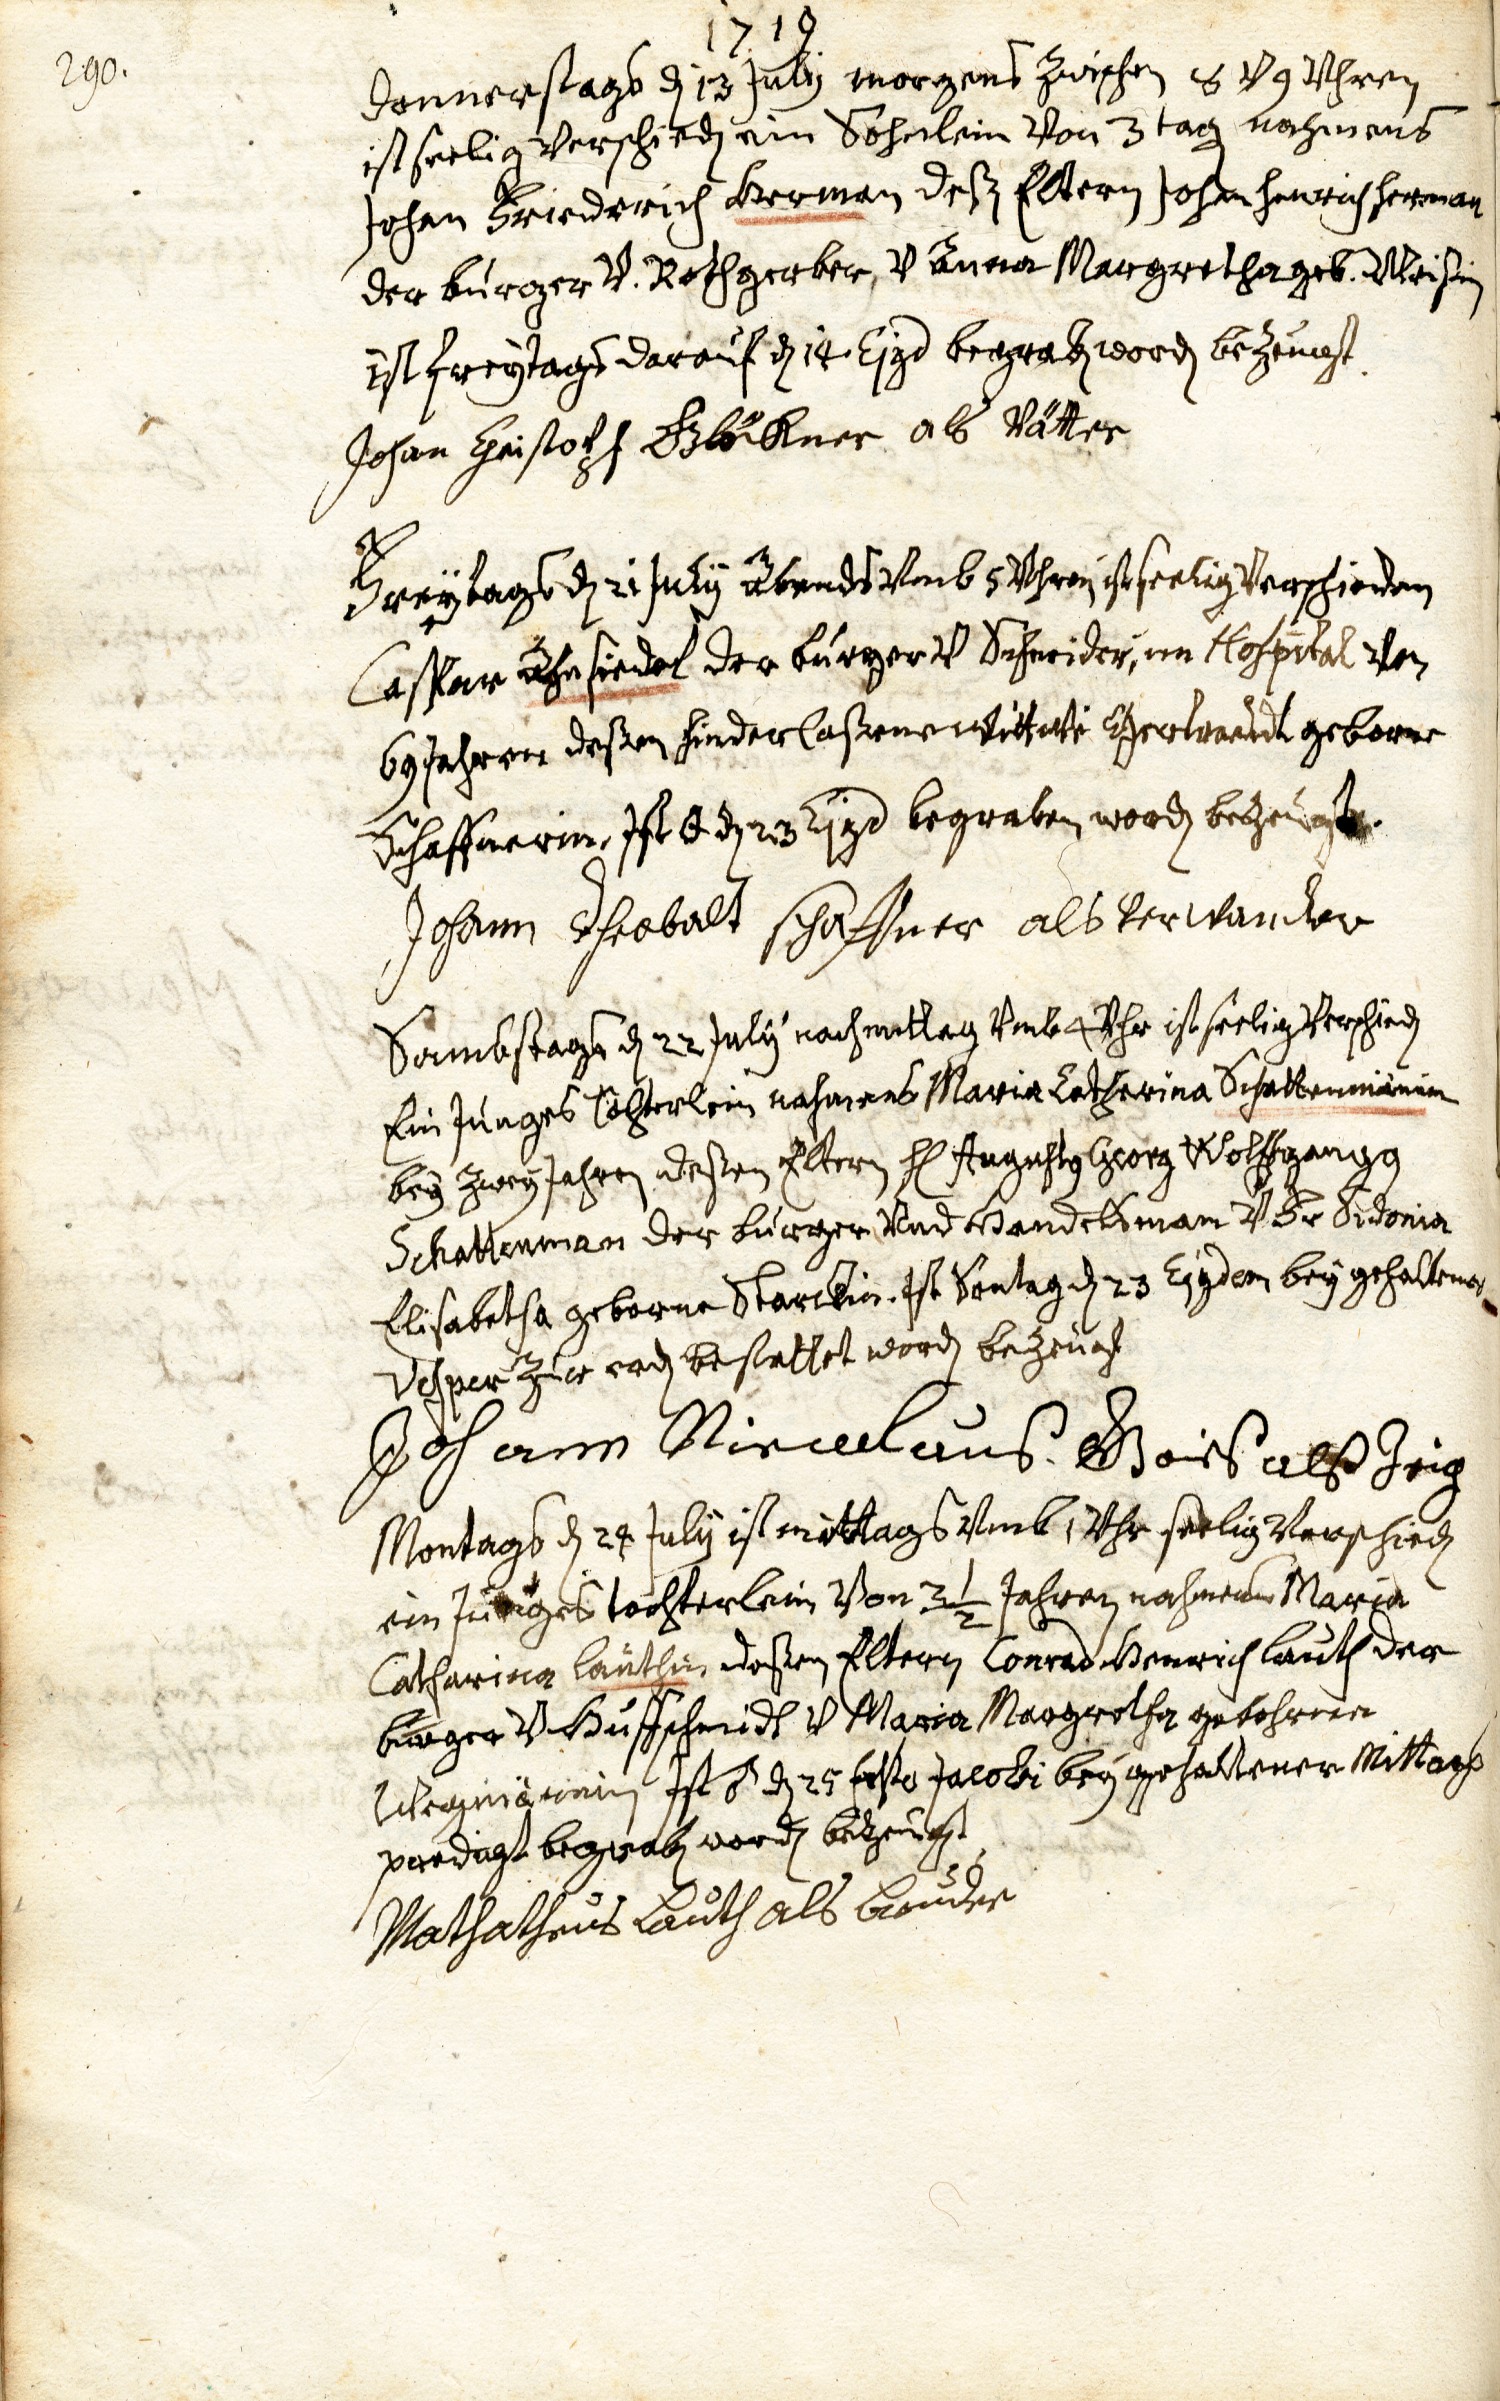 1719
290.
Donnerstags dȷ 13 July morgens zwischen 8 V 9 Vhren
ist seelig verschiedȷ ein Söhnlein Von 3 tag nahmens
Johan Friederich Herman deßȷ Eltern Johan Henrich Herman
der burger V. Rothgerber, V Anna Margretha geb.
ist freytags darauf dȷ 14. Ejusd begrabȷ wordȷ bezeugt
Johan Christoph Glöckner als Vätter
Freytags dȷ 21 July Abends Vmb 5 Vhren ist seelig Verschieden
Caspar der burger V Schneider, im Hospital Von
69 Jahren deßen hinderlaßene Wittwe geborne
Schaffnerin, Ist dȷ 23 Ejusd begraben wordȷ bezeugt.
Johann Theobalt schaffner als verwander
Sambstags dȷ 22 July nachmittag Vmb 4 Vhr ist seelig Verschiedȷ
Ein Junges Töchterlein nahmens Maria Catharina Schattenmänin
bey zwey Jahren deßen Eltern H Augustq Georg Wolffgangg
Schattenman der burger Vnd Handelsman V Fr Sidonia
Elisabetha geborne Starckin. Ist Sontag dȷ 23 Ejusdem bey gehaltener
Vesper zur erdȷ bestattet wordȷ bezeugt
Johann Nicuelaus. Gois alß Zeig
Montags dȷ 24 July ist mittags Vmb 1 Vhr seelig Verschiedȷ
ein Junges tochterlein Von 2 1/2 Jahren nahmens Maria
Catharina Lauthin deßen Eltern Conrad Henrich Lauth der
burger V Huffschmidt V Maria Margretha gebohrne
Wegmännin Ist ♂ dȷ 25 festo Jacobi bey gehaltener Mittags
predigt begrabȷ wordȷ bezeugt
Mathatheus Lauth als bruder